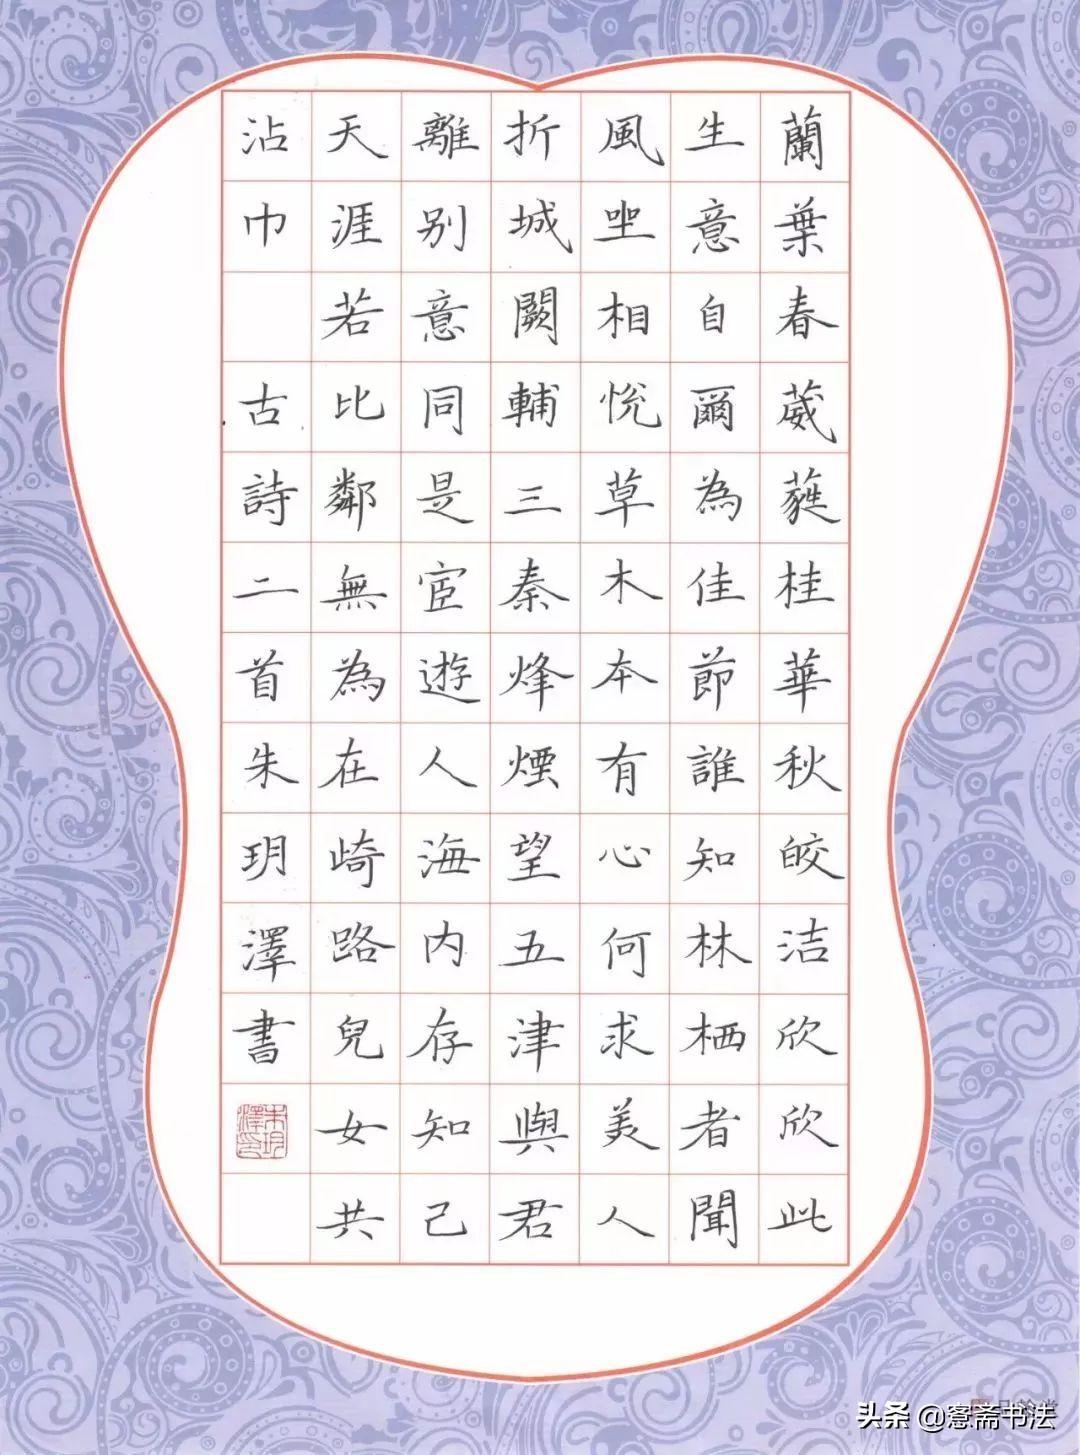 蘭葉春葳蕤桂華秋皎洁欣欣此
生意自爾為佳節誰知林栖者聞
風坐相悅草木本有心何求美人
折城闕輔三秦烽煙望五津與君
離别意同是宦遊人海内存知己
天涯若比鄰無為在崎路兒女共
沾巾 古詩二首朱玥澤書
朱玥澤印
头条 @愙斋书法